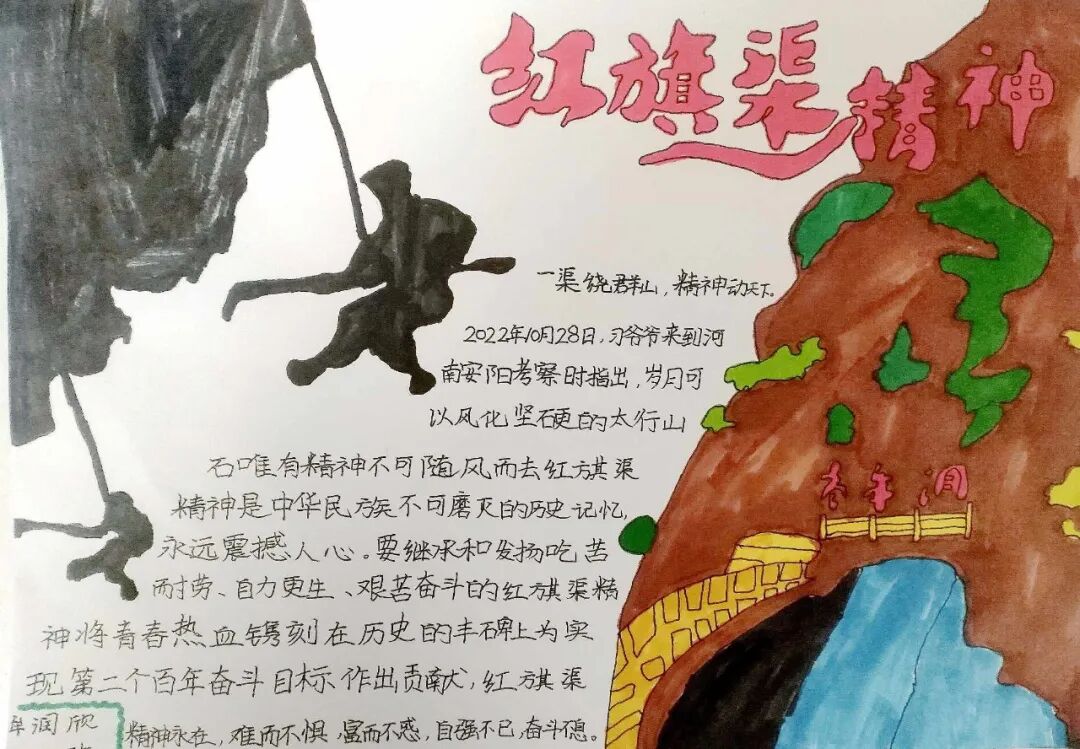 红旗渠精神
一渠绕群山，精神动天下。
2022年10月28日，习爷爷来到河
南安阳考察时指出，岁月可
以风化坚硬的太行山
石唯有精神不可随风而去红旗渠
精神是中华民族不可磨灭的历史记忆，
永远震撼人心。要继承和发扬吃苦
耐劳、自力更生、艰苦奋斗的红旗渠精
神将青春热血镌刻在历史的丰碑上为实
现第二个百年奋斗目标作出贡献，红旗渠
精神永在，难而不惧，富而不惑，自强不已，奋斗不息。
年洞
润欣